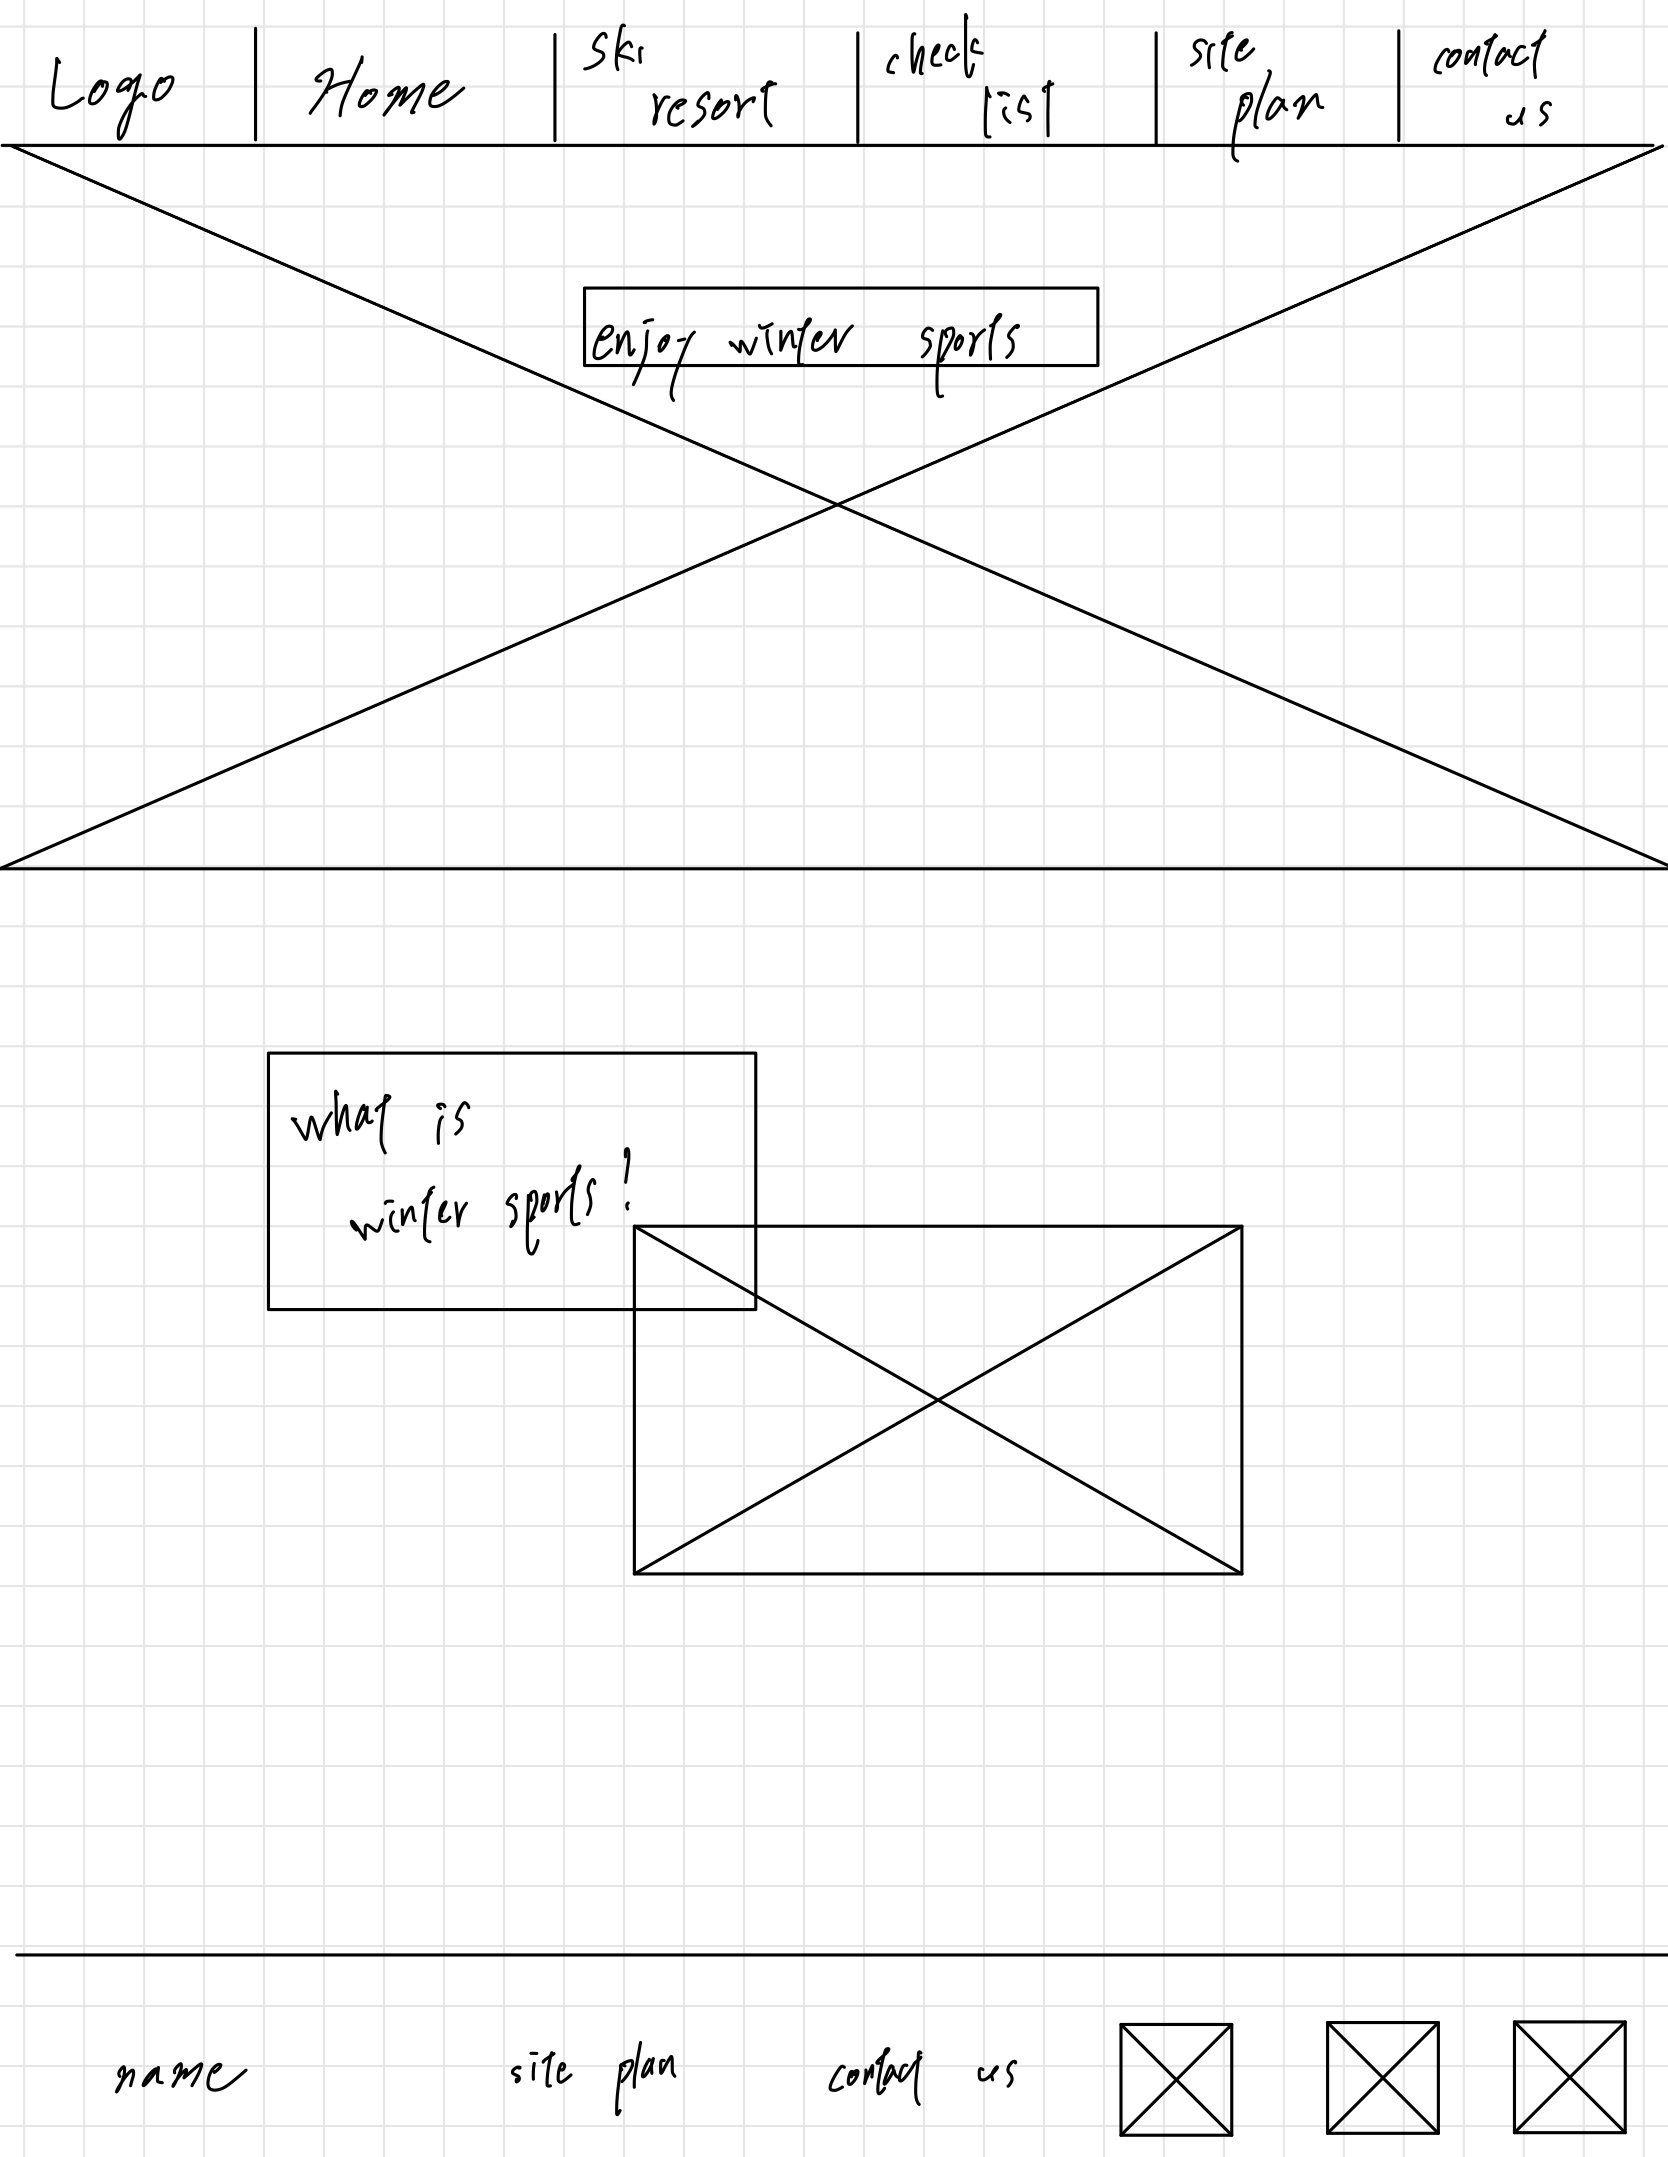 Logo
Home
Ski
resort
check
list
site
plan
contact
us
enjoy winter sports
what is
winter sports?
name
site plan
contact us